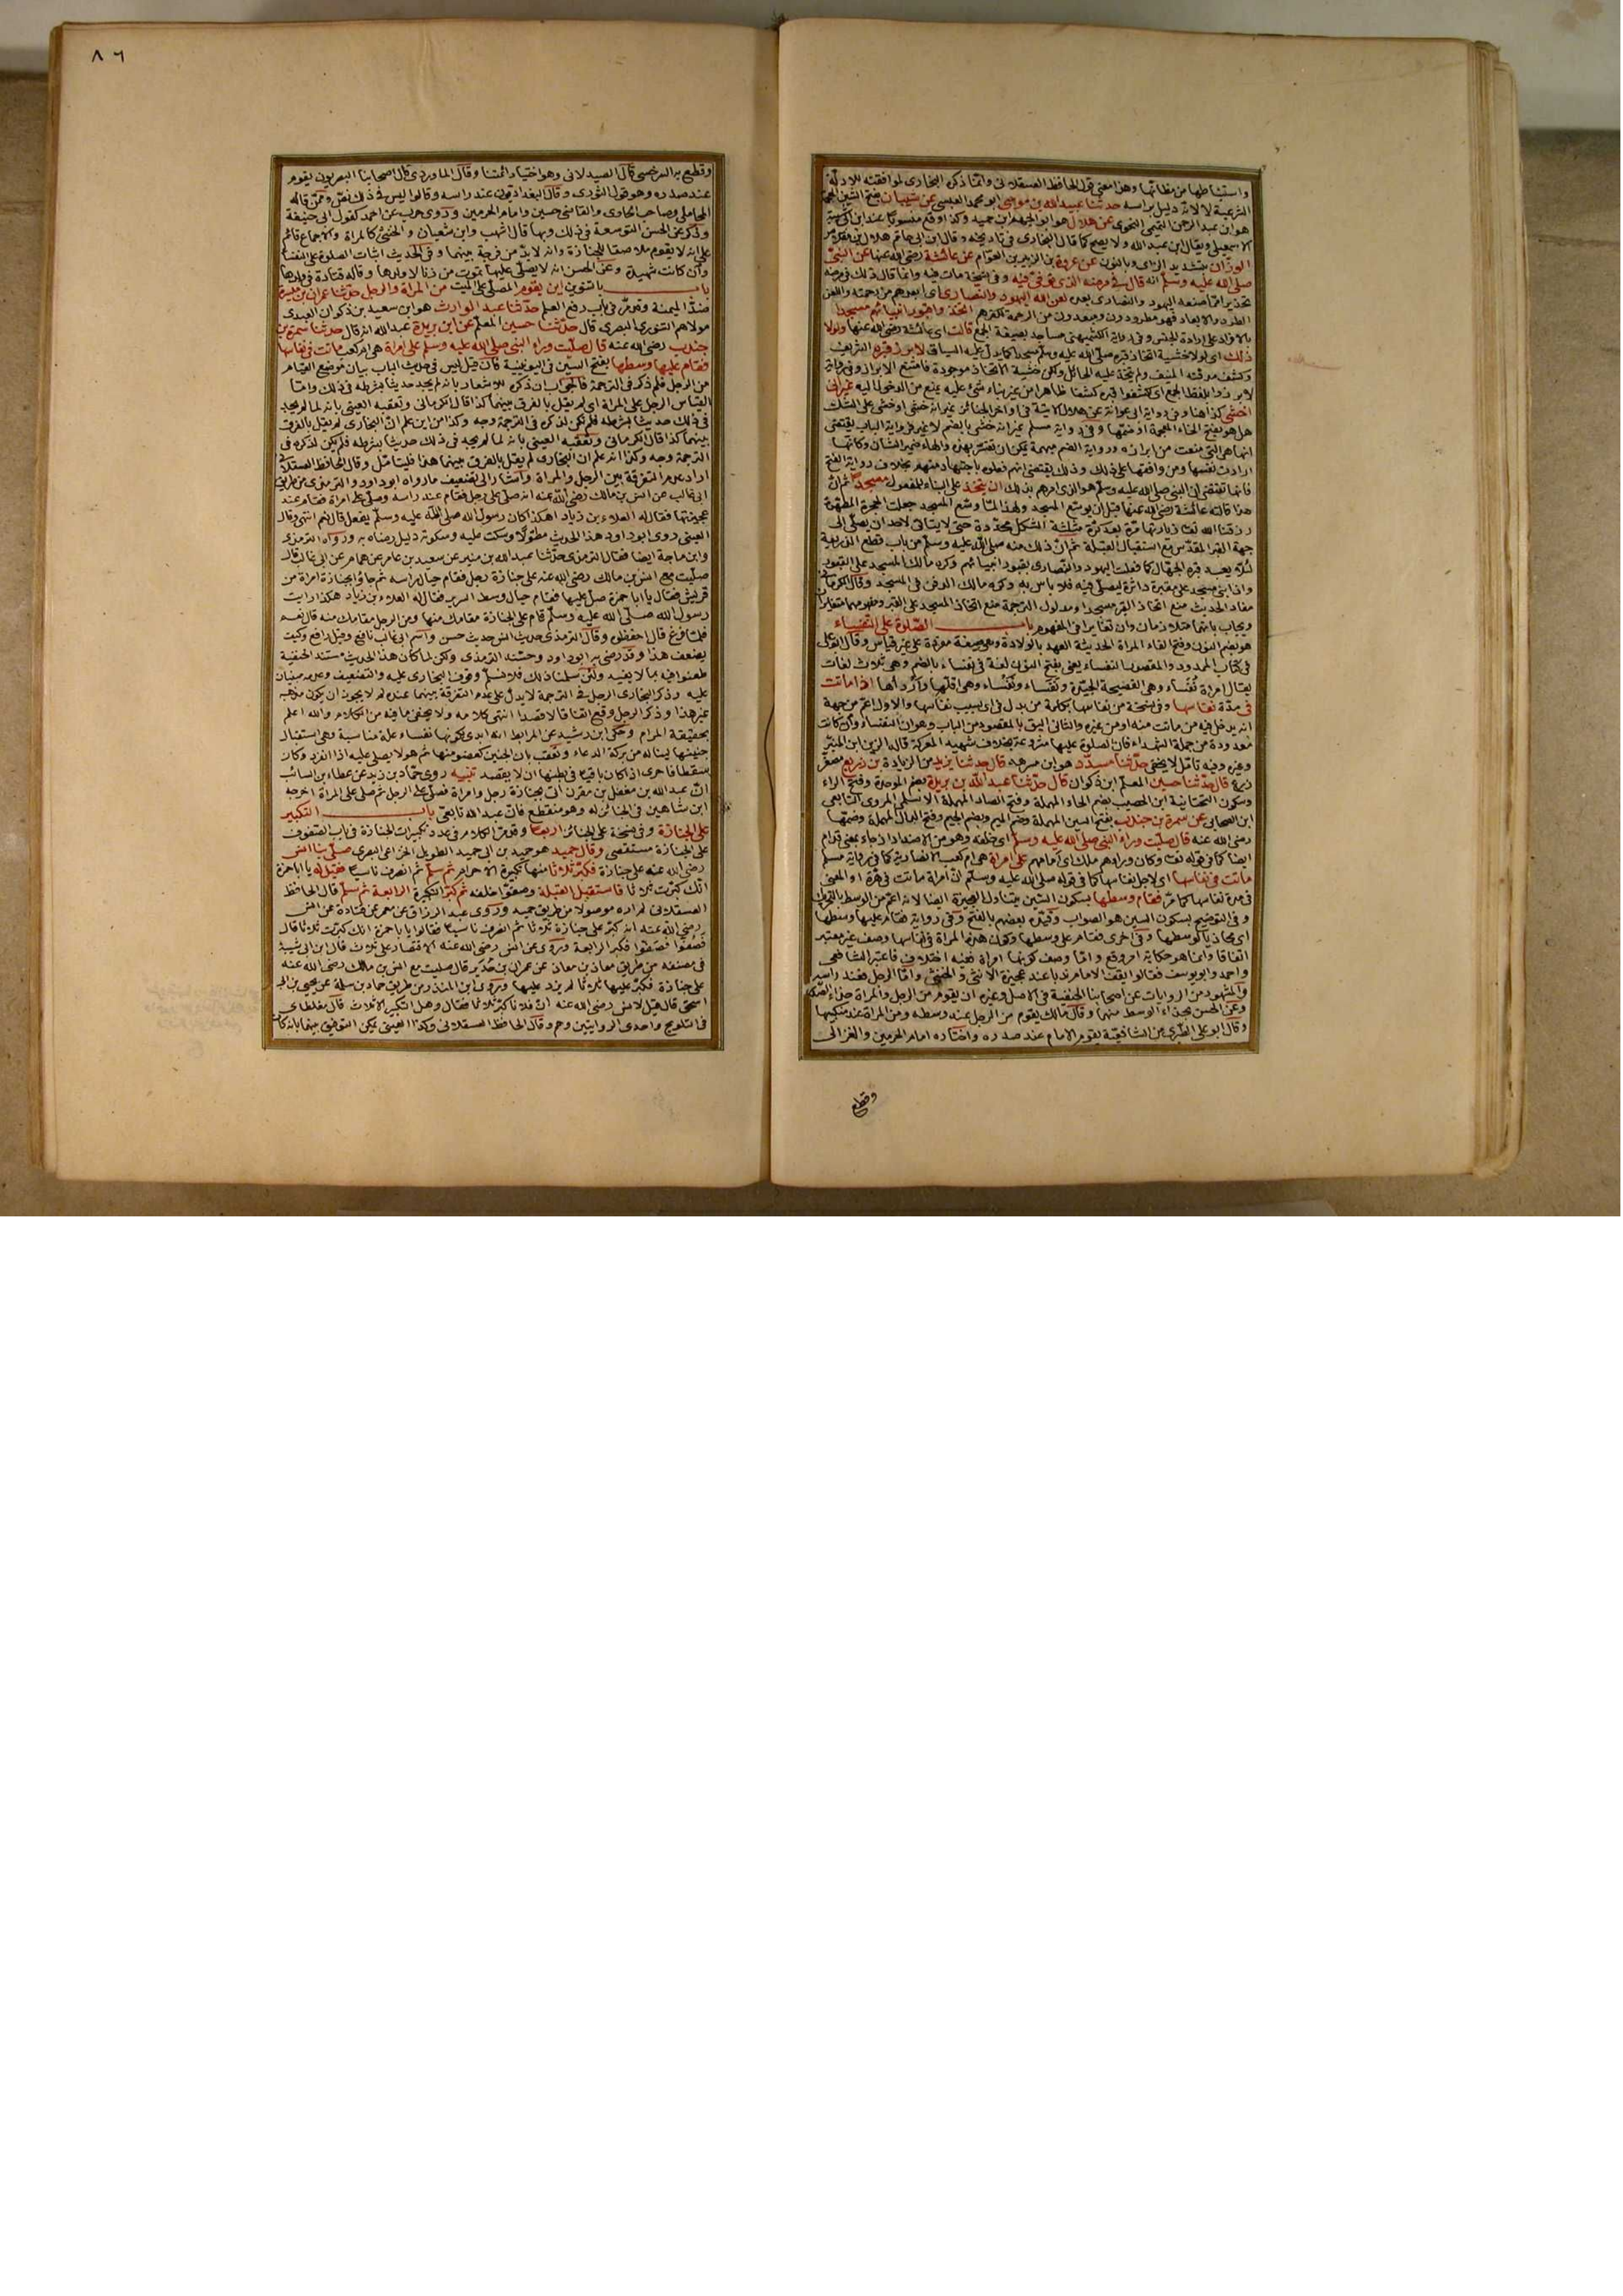 واستنباطها من مظانها وهذا معنى قول الحافظ العسقلانى وانما ذكره البخارى لموافقته للادلة
الشرعية لا لانه دليل براسه حدثنا عبيد الله بن موسى ابو محمد العبسى عن شيبان بفتح الشين المعجمة
هو ابن عبد الرحمن التميمى النحوى عن هلال هو ابو الجهم ابن حميد وكذا وقع منسوبا عند ابن ابى شيبة
الوزان بتشديد الزاى وبالنون عن عروة بن الزبير بن العوام عن عائشة رضى الله عنها عن النبى
صلى الله عليه وسلم انه قال فى مرضه الذى توفى فيه وفى نسخة مات فيه وانما قال ذلك فى مرضه
تحذيرا مما صنعه اليهود والنصارى لعن الله اليهود والنصارى اى ابعدهم من رحمته واللعن
الطرد والابعاد فهم مطرودون ومبعدون من الرحمة لكفرهم اتخذوا قبور انبيائهم مسجدا
بالافراد على ارادة الجنس وفى رواية الكشميهنى مساجد بصيغة الجمع قالت اى عائشة رضى الله عنها ولولا
ذلك اى لولا خشية اتخاذ قبره صلى الله عليه وسلم مسجدا كما يدل عليه السياق لابرز قبره الشريف
وكشف مرقده المنيف ولم يتخذ عليه الحائل ولكن خشية الاتخاذ موجودة فامتنع الابراز وفى رواية
لابرزوا بلفظ الجمع اى كشفوا قبره كشفا ظاهرا من غير بناء شىء عليه يمنع من الدخول اليه غير انى
اخشى كذا هنا وفى رواية ابى عوانة عن هلال الاتية فى اواخر الجنائز غير انه خشى او خشى على الشك
هل هو بفتح الخاء المعجمة او ضمها وفى رواية مسلم غير انه خشى بالضم لا غير فرواية الباب تقتضى
انها هى التى منعت من ابرازه ورواية الضم مبهمة يمكن ان تفسر بهذه والهاء ضمير الشان وكانها
ارادت نفسها ومن وافقها على ذلك وذلك يقتضى انهم فعلوه باجتهاد منهم بخلاف رواية الفتح
فانها تقتضى ان النبى صلى الله عليه وسلم هو الذى امرهم بذلك ان يتخذ على البناء للمفعول مسجدا ثم ان
هذا قالته عائشة رضى الله عنها قبل ان يوسع المسجد ولهذا لما وسع المسجد جعلت الحجرة المطهرة
رزقنا الله تعالى زيارتها مرة بعد كرة مثلثة الشكل محددة حتى لا يتاتى لاحد ان يصلى الى
جهة القبر المقدس مع استقبال القبلة ثم ان ذلك منه صلى الله عليه وسلم من باب قطع الذريعة
لئلا يعبد قبره الجهال كما فعلت اليهود والنصارى بقبور انبيائهم وكره مالك المسجد على القبور
واذا بنى مسجد على مقبرة داثرة ليصلى فيه فلا باس به وكره مالك الدفن فى المسجد وقال الكرمانى
مفاد الحديث منع اتخاذ القبر مسجدا ومدلول الترجمة منع اتخاذ المسجد على القبر ومفهومهما متغاير
ويجاب بانهما متلازمان وان تغايرا فى المفهوم باب الصلوة على النفساء
هو بضم النون وفتح الفاء المراة الحديثة العهد بالولادة وهى صيغة مفردة على غير قياس وقال ابو على
فى كتاب الممدود والمقصور النفساء يعنى بفتح النون لغة فى نفساء بالضم وهى ثلاث لغات
يقال امراة نفساء وهى الفصيحة الجيدة ونفساء ونفساء وهى اقلها واردأها اذا ماتت
فى مدة نفاسها وفى نسخة من نفاسها بكلمة من بدل فى اى بسبب نفاسها والاول اعم من جهة
انه يدخل فيه من ماتت منه او من غيره والثانى اليق بالمقصود من الباب وهو ان النفساء وان كانت
معدودة من جملة الشهداء فان الصلوة عليها مشروعة بخلاف شهيد المعركة قاله الزين ابن المنير
وغيره وفيه تامل لا يخفى حدثنا مسدد هو ابن مسرهد قال حدثنا يزيد من الزيادة بن زريع مصغر
زرع قال حدثنا حسين المعلم ابن ذكوان قال حدثنا عبد الله بن بريدة بضم الموحدة وفتح الراء
وسكون التحتانية ابن الحصيب بضم الحاء المهملة وفتح الصاد المهملة الاسلمى المروزى التابعى
ابن الصحابى عن سمرة بن جندب بفتح السين المهملة وضم الميم وبضم الجيم وفتح الدال المهملة وضمها
رضى الله عنه قال صليت وراء النبى صلى الله عليه وسلم اى خلفه وهو من الاضداد اذ جاء بمعنى قدام
ايضا كما فى قوله تعالى وكان وراءهم ملك اى امامهم على امراة هى ام كعب الانصارية كما فى رواية مسلم
ماتت فى نفاسها اى لاجل نفاسها كما فى قوله صلى الله عليه وسلم ان امراة ماتت فى هرة او المعنى
فى مدة نفاسها كما مر فقام وسطها بسكون السين يتناول العجيزة ايضا لانه اعم من الوسط بالتحريك
وفى التوضيح بسكون السين هو الصواب وقيده بعضهم بالفتح وفى رواية فقام عليها وسطها
اى محاذيا لوسطها وفى اخرى فقام على وسطها وكون هذه المراة فى نفاسها وصف غير معتبر
اتفاقا وانما هو حكاية امر وقع واما وصف كونها امراة ففيه اختلاف فاعتبره الشافعى
واحمد وابو يوسف فقالوا يقف الامام ندبا عند عجيزة الانثى والخنثى واما الرجل فعند راسه
والمشهور من الروايات عن اصحابنا الحنفية فى الاصل وغيره ان يقوم من الرجل والمراة حذاء الصدر
وعن الحسن بحذاء الوسط منهما وقال مالك يقوم من الرجل عند وسطه ومن المراة عند منكبيها
وقال ابو على الطبرى من الشافعية يقوم الامام عند صدره واختاره امام الحرمين والغزالى
وقطع
٨٦
وقطع به السرخسى قال الصيدلانى وهو اختيار ائمتنا وقال الماوردى قال اصحابنا البصريون يقوم
عند صدره وهو قول الثورى وقال البغداديون عند راسه وقالوا ليس فى ذلك نص وممن قاله
المحاملى وصاحب الحاوى والقاضى حسين وامام الحرمين وروى حرب عن احمد كقول ابى حنيفة
وذكر عن الحسن التوسعة فى ذلك وبها قال اشهب وابن شعبان والخنثى كالمراة والاجماع قائم
على انه لا يقوم ملاصقا للجنازة وانه لا بد من فرجة بينهما وفى الحديث اثبات الصلوة على النفساء
وان كانت شهيدة وعن الحسن انه لا يصلى عليها بموت من زنا ولا ولدها وقاله قتادة فى ولدها
باب بالتنوين اين يقوم المصلى على الميت من المراة والرجل حدثنا عمران بن ميسرة
ضد الميمنة وقد مر فى باب رفع العلم حدثنا عبد الوارث هو ابن سعيد بن ذكوان العبدى
مولاهم التنورى البصرى قال حدثنا حسين المعلم عن ابن بريدة عبد الله انه قال حدثنا سمرة بن
جندب رضى الله عنه قال صليت وراء النبى صلى الله عليه وسلم على امراة هى ام كعب ماتت فى نفاسها
فقام عليها وسطها بفتح السين فى اليونينية فان قيل ليس فى حديث الباب بيان موضع القيام
من الرجل فلم ذكره فى الترجمة فالجواب ان ذكره للاشعار بانه لم يجد حديثا بشرطه فى ذلك واما
القياس الرجل على المراة اى لم يقل بالفرق بينهما كذا قال الكرمانى وتعقبه العينى بانه لما لم يجد
فى ذلك حديثا بشرطه فلم يكن لذكره فى الترجمة وجه وكذا من اين علم ان البخارى لم يقل بالفرق
بينهما كذا قال الكرمانى وتعقبه العينى بانه لما لم يجد فى ذلك حديثا بشرطه فلم يكن لذكره فى
الترجمة وجه وكذا انه علم ان البخارى لم يقل بالفرق بينهما هذا فليتامل وقال الحافظ العسقلانى
اراد عدم التفرقة بين الرجل والمراة واشار الى تضعيف ما رواه ابو داود والترمذى من طريق
ابى غالب عن انس بن مالك رضى الله عنه انه صلى على رجل فقام عند راسه وصلى على امراة فقام عند
عجيزتها فقال له العلاء بن زياد اهكذا كان رسول الله صلى الله عليه وسلم يفعل قال نعم انتهى وقال
العينى روى ابو داود هذا الحديث مطولا وسكت عليه وسكوته دليل رضاه به ورواه الترمذى
وابن ماجة ايضا فقال الترمذى حدثنا عبد الله بن منير عن سعيد بن عامر عن همام عن ابى غالب قال
صليت مع انس بن مالك رضى الله عنه على جنازة رجل فقام حيال راسه ثم جاؤا بجنازة امراة من
قريش فقالوا يا ابا حمزة صل عليها فقام حيال وسط السرير فقال له العلاء بن زياد هكذا رايت
رسول الله صلى الله عليه وسلم قام على الجنازة مقامك منها ومن الرجل مقامك منه قال نعم
فلما فرغ قال احفظوه وقال الترمذى حديث انس حديث حسن واسم ابى غالب نافع وقيل رافع وكيف
يضعف هذا وقد رضى به ابو داود وحسنه الترمذى ولكن لما كان هذا الحديث مستند الحنفية
طعنوا فيه بما لا يفيد ولئن سلمنا ذلك فلا نسلم وقوف البخارى عليه والتضعيف وعدمه مبنيان
عليه وذكر البخارى الرجل فى الترجمة لا يدل على عدم التفرقة بينهما عنده لم لا يجوز ان يكون مذهبه
غير هذا وذكر الرجل وقع اتفاقا لا قصدا انتهى كلامه ولا يخفى ما فيه من الكلام والله اعلم
بحقيقة المرام وحكى ابن رشيد عن المرابط انه ابدى لكونها نفساء علة مناسبة وهى استقبال
جنينها ليناله من بركة الدعاء وتعقب بان الجنين كعضو منها ثم هو لا يصلى عليه اذا انفرد وكان
سقطا فاحرى اذا كان باقيا فى بطنها ان لا يقصد تنبيه روى حماد بن زيد عن عطاء بن السائب
ان عبد الله بن مغفل بن مقرن اتى بجنازة رجل وامراة فصلى على الرجل ثم صلى على المراة اخرجه
ابن شاهين فى الجنائز له وهو منقطع فان عبد الله تابعى باب التكبير
على الجنازة وفى نسخة على الجنائز اربعا وقد مر الكلام فى عدد تكبيرات الجنازة فى باب الصفوف
على الجنازة مستقصى وقال حميد هو حميد بن ابى حميد الطويل الخزاعى البصرى صلى بنا انس
رضى الله عنه على جنازة فكبر ثلاثا منها تكبيرة الاحرام ثم سلم ثم انصرف ناسيا فقيل له يا ابا حمزة
انك كبرت ثلاثا فاستقبل القبلة وصفوا خلفه ثم كبر التكبيرة الرابعة ثم سلم قال الحافظ
العسقلانى لم اره موصولا من طريق حميد وروى عبد الرزاق عن معمر عن قتادة عن انس
رضى الله عنه انه كبر على جنازة ثلاثا ثم انصرف ناسيا فقالوا يا ابا حمزة انك كبرت ثلاثا قال
فصفوا فصفوا فكبر الرابعة وروى عن انس رضى الله عنه الاقتصار على ثلاث قال ابن ابى شيبة
فى مصنفه من طريق معاذ بن معاذ عن عمران بن حدير قال صليت مع انس بن مالك رضى الله عنه
على جنازة فكبر عليها ثلاثا لم يزد عليها وروى ابن المنذر من طريق حماد بن سلمة عن يحيى بن ابى
اسحق قال قيل لانس رضى الله عنه ان فلانا كبر ثلاثا فقال وهل التكبير الا ثلاث قال مغلطاى
فى التلويح واحدى الروايتين وهم وقال الحافظ العسقلانى وكذا العينى يمكن التوفيق بينهما بانه كان